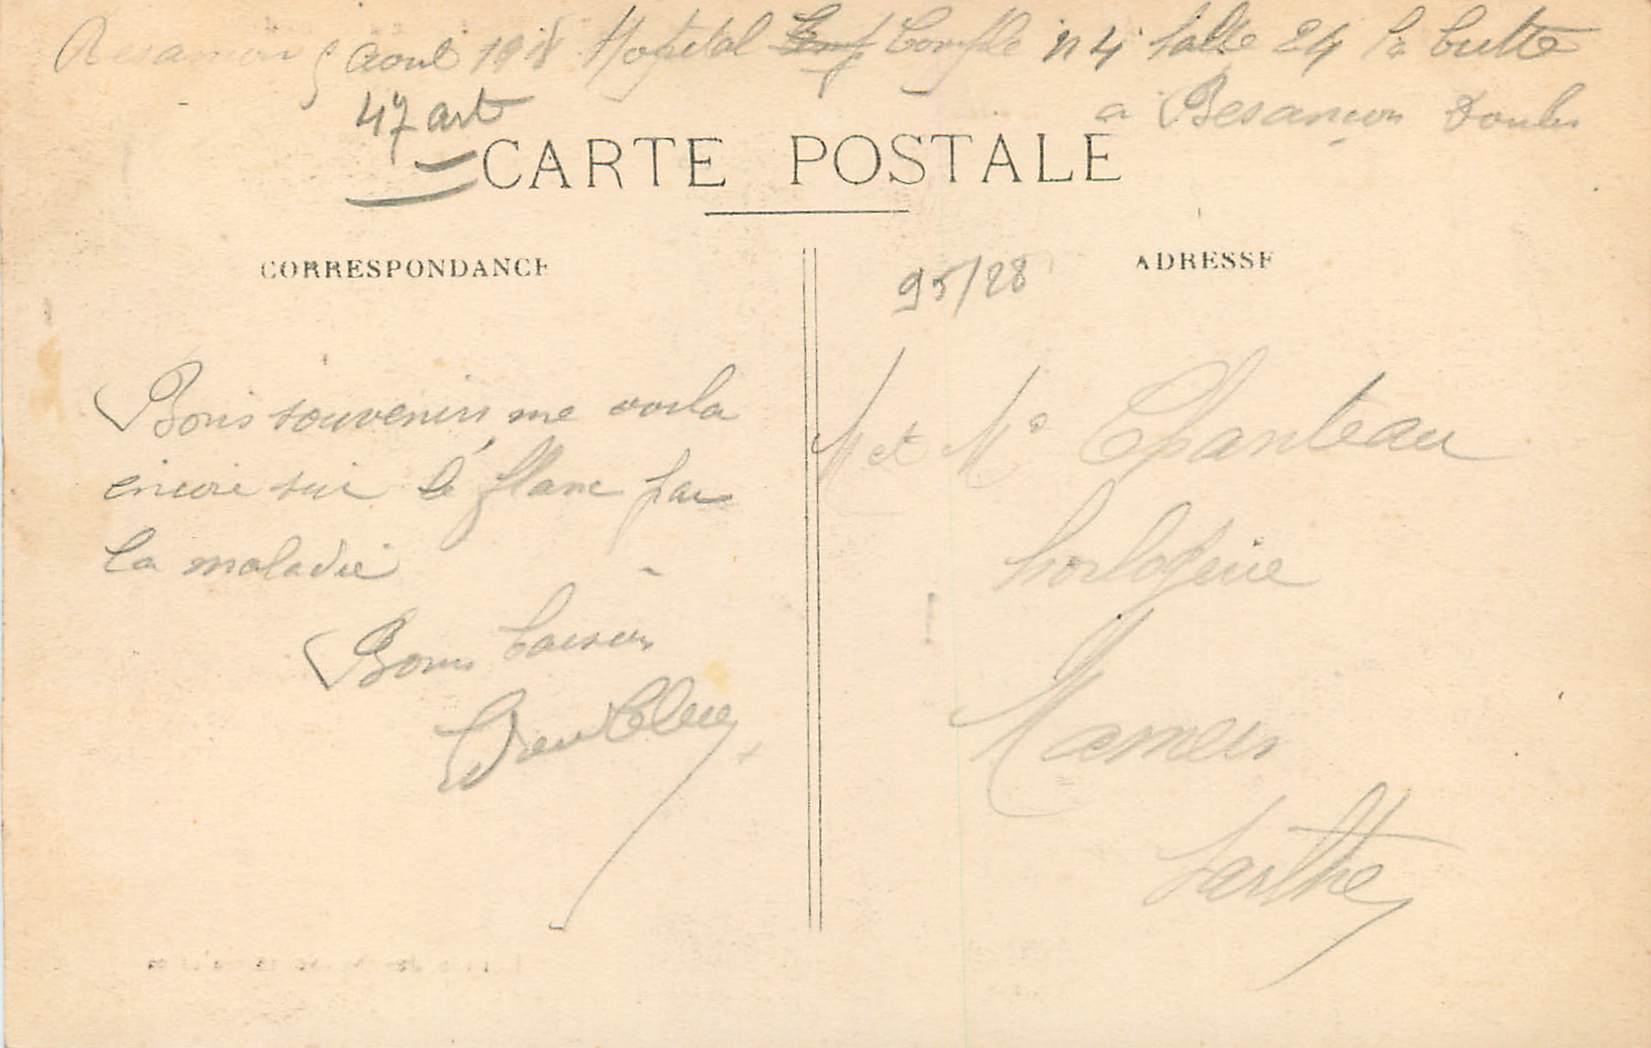 Besançon 5 aout 1918 Hopital Comple n 4 salle 24 la butte
a Besançon Doubs
47 art
CARTE POSTALE
CORRESPONDANCE
ADRESSE
95/28
Bons souvenirs me voila
encore sur le flanc par
la maladie
Bons baisers
M et Me Chanteau
horlogerie
Mamers
Sarthe